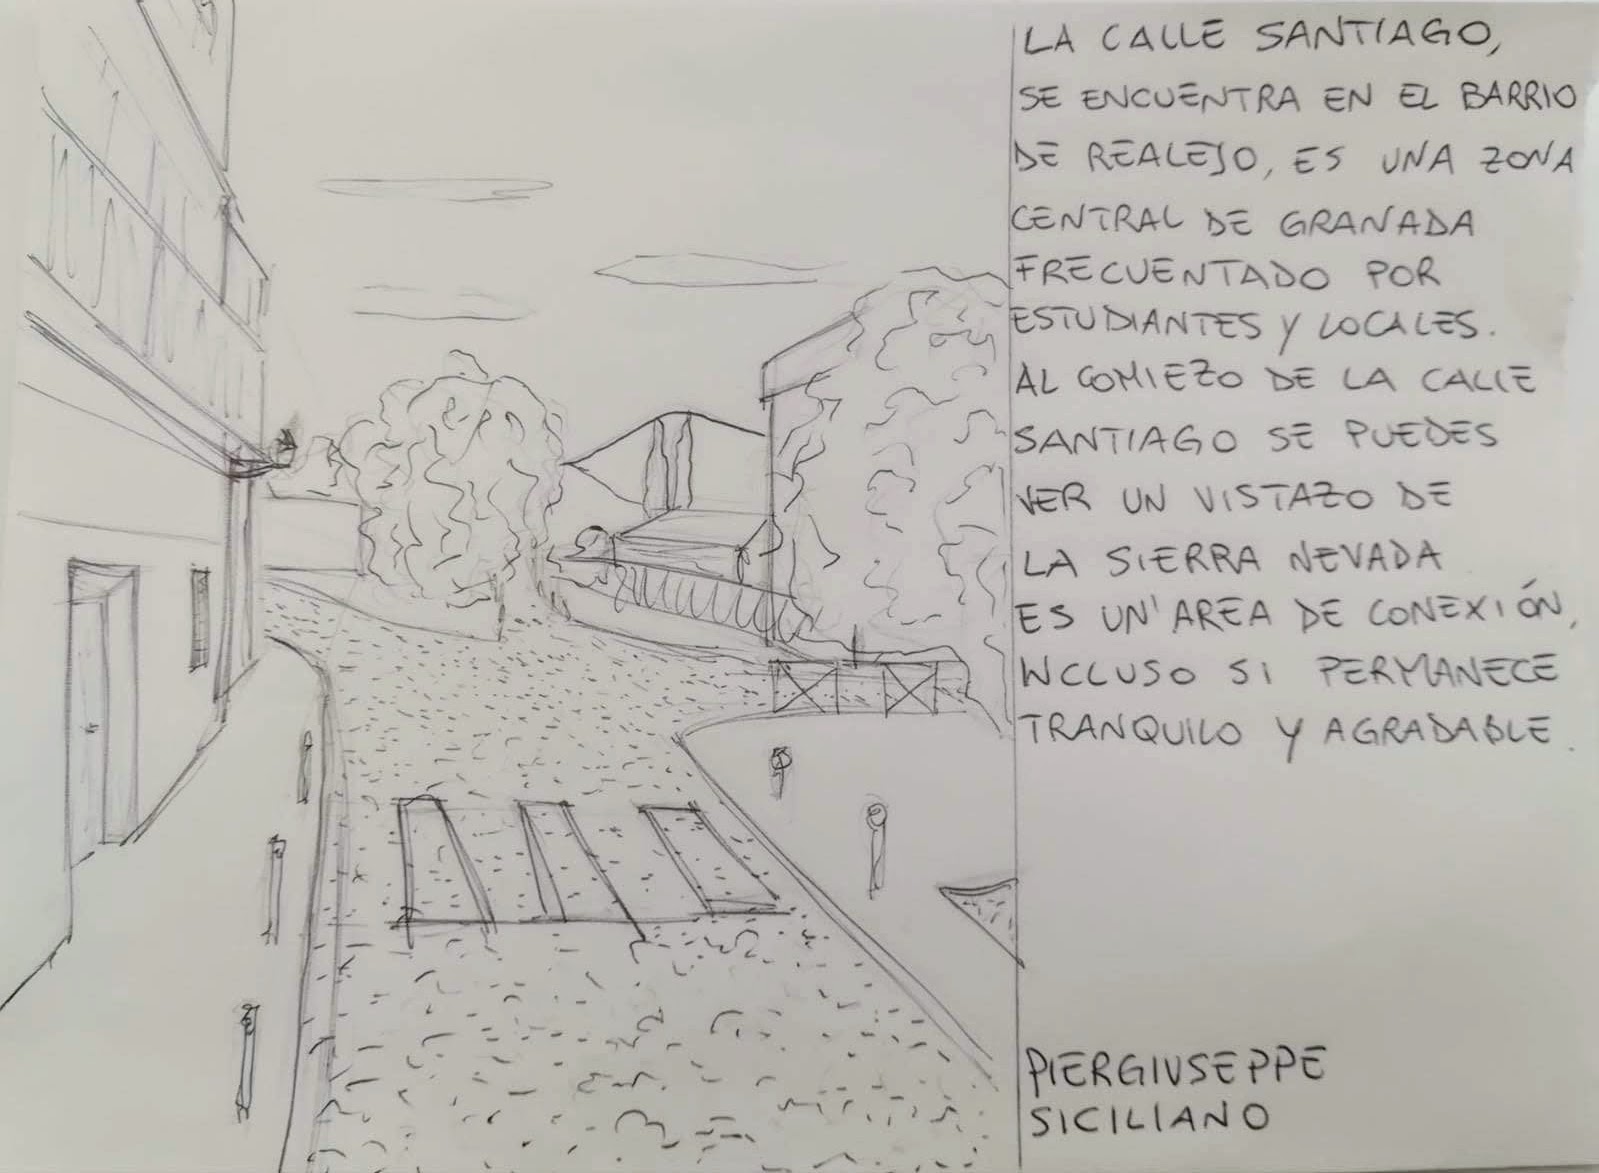 LA CALLE SANTIAGO,
SE ENCUENTRA EN EL BARRIO
DE REALEJO, ES UNA ZONA
CENTRAL DE GRANADA
FRECUENTADO POR
ESTUDIANTES Y LOCALES.
AL COMIEZO DE LA CALLE
SANTIAGO SE PUEDES
VER UN VISTAZO DE
LA SIERRA NEVADA
ES UN'AREA DE CONEXIÓN,
INCLUSO SI PERMANECE
TRANQUILO Y AGRADABLE.
PIERGIUSEPPE
SICILIANO